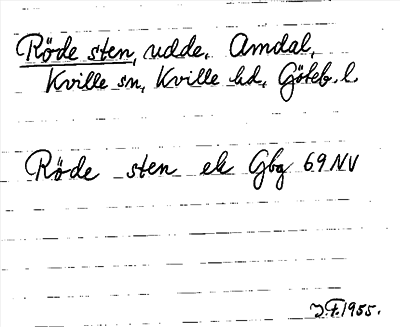 Röde sten, udde, Amdal,
Kville sn, Kville hd, Göteb. l.
Röde sten ek Gbg 69 NV
1955.